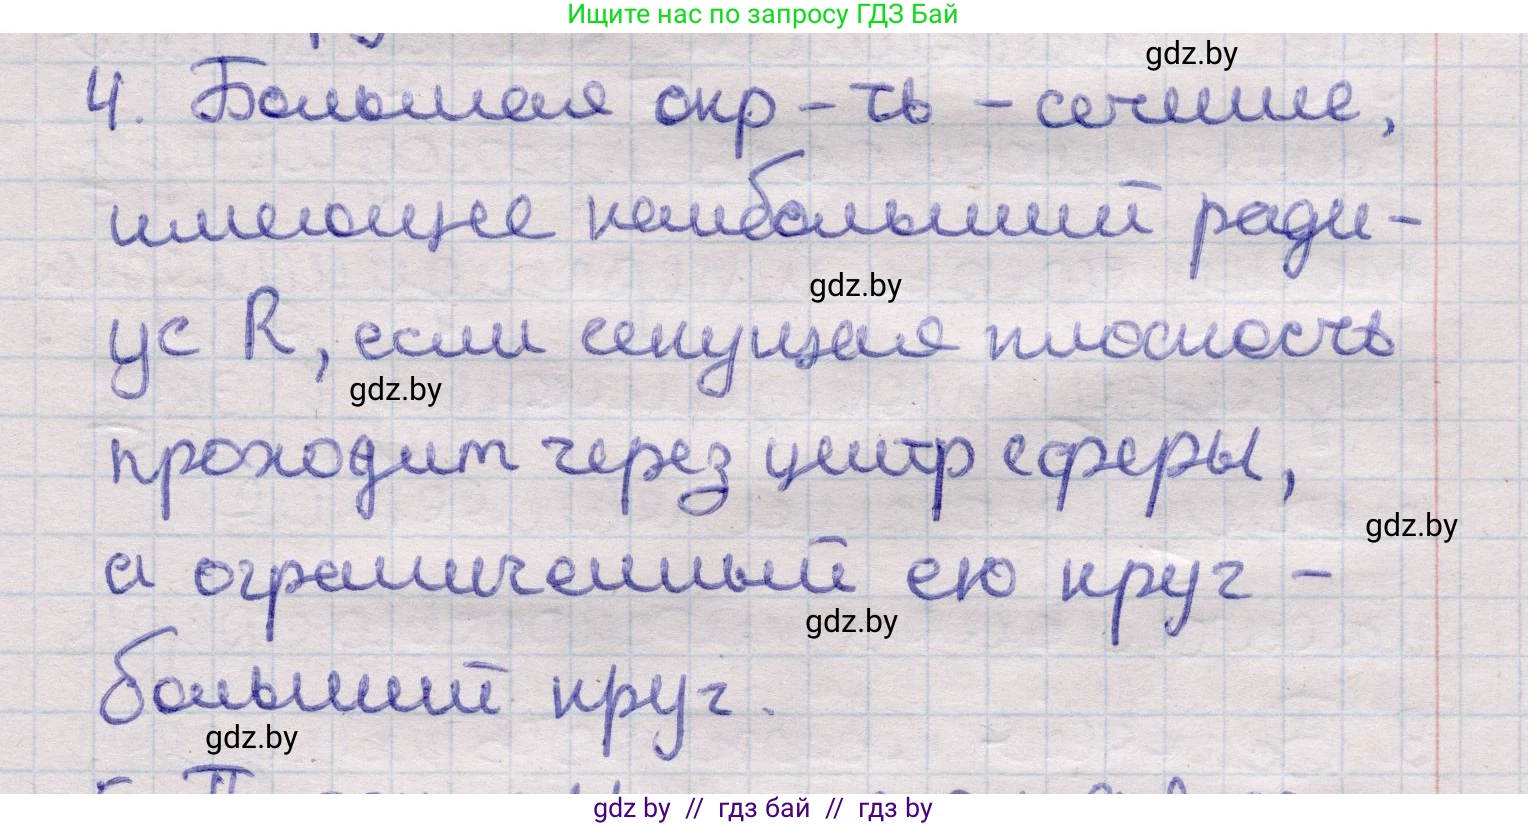 Ищите нас по запросу ГДЗ Бай
gdz.by
4. Большая окр-ть - сечение,
имеющее наибольший ради-
gdz.by
ус R, если секущая плоскость
gdz.by
проходит через центр сферы,
gdz.by
а ограниченный ею круг -
gdz.by
больший круг.
gdz.by
gdz by // гдз бай // гдз by